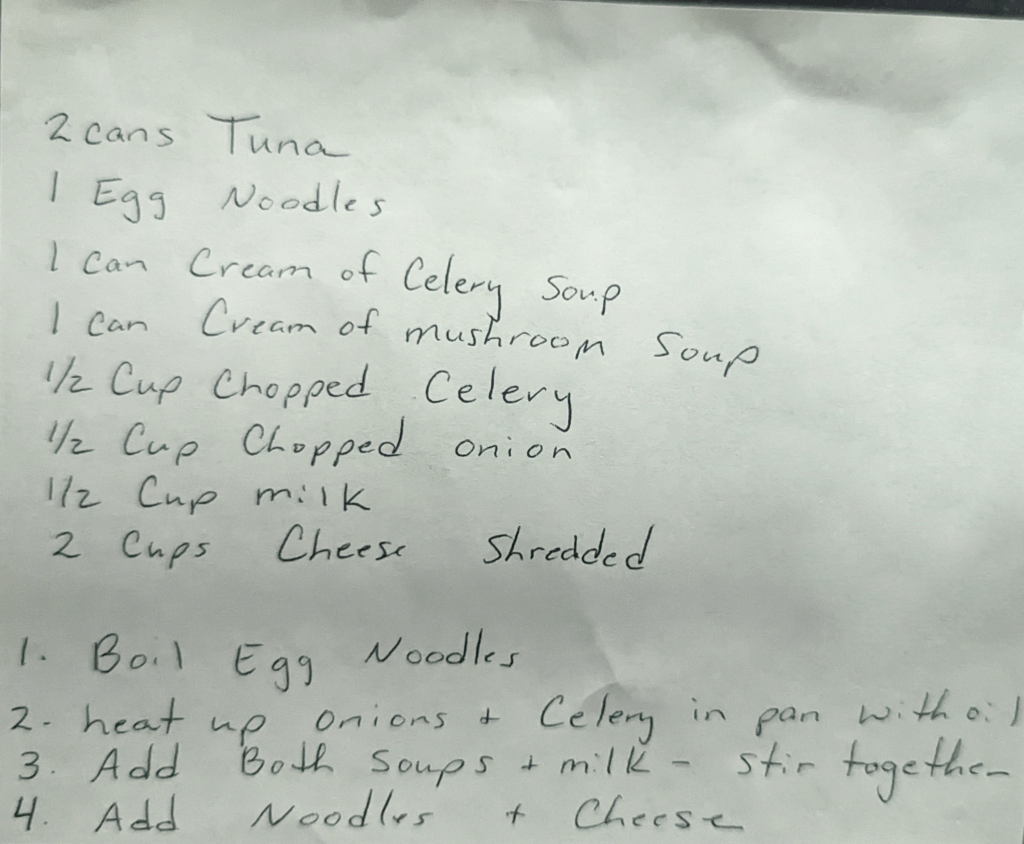 2 cans Tuna
1 Egg Noodles
1 can Cream of Celery Soup
1 can Cream of mushroom Soup
1/2 Cup Chopped Celery
1/2 Cup Chopped onion
1/2 Cup milk
2 Cups Cheese Shredded
1. Boil Egg Noodles
2. heat up onions + Celery in pan with oil
3. Add Both Soups + milk - stir together
4. Add Noodles + Cheese